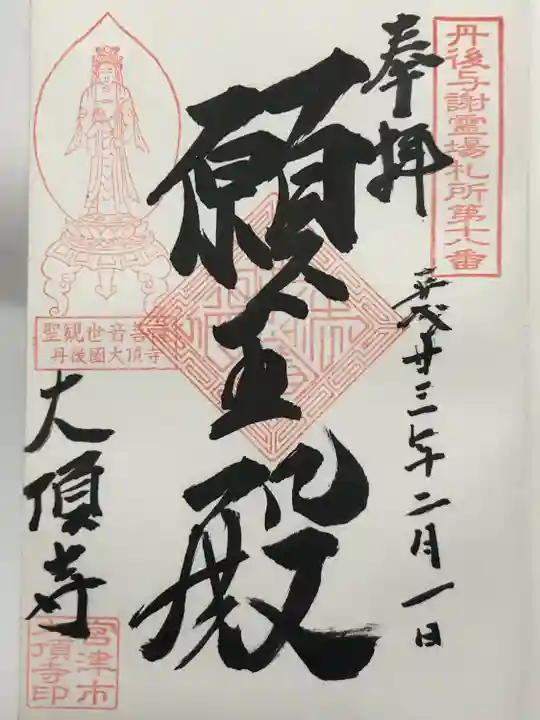 丹後与謝霊場札所第十八番
奉拝
平成廿三年二月一日
願王殿
聖観世音菩薩
丹後國大頂寺
大頂寺
宮津市
大頂寺印